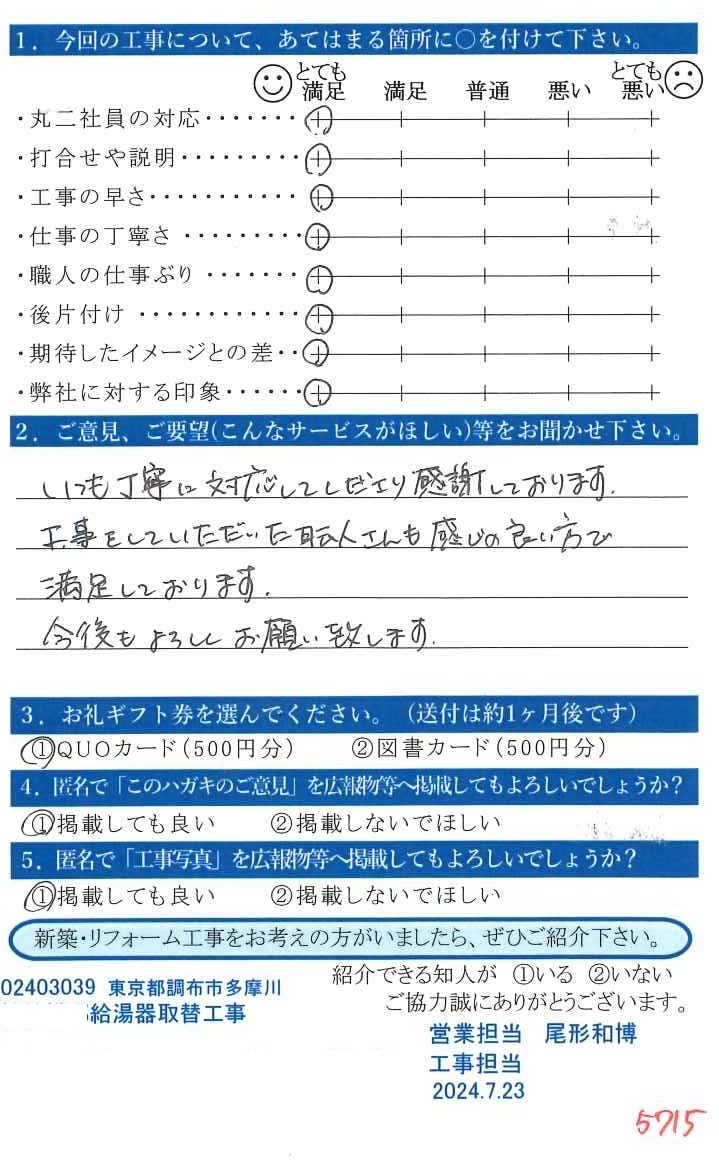 1．今回の工事について、あてはまる箇所に○を付けて下さい。
とても満足 満足 普通 悪い とても悪い
・丸二社員の対応・・・・・・・
・打合せや説明・・・・・・・・・
・工事の早さ・・・・・・・・・・・
・仕事の丁寧さ ・・・・・・・・・
・職人の仕事ぶり ・・・・・・・
・後片付け ・・・・・・・・・・・・
・期待したイメージとの差・・
・弊社に対する印象・・・・・・
2．ご意見、ご要望(こんなサービスがほしい)等をお聞かせ下さい。
いつも丁寧に対応してくださり感謝しております.
工事をしていただいた職人さんも感じの良い方で
満足しております.
今後もよろしくお願い致します.
3．お礼ギフト券を選んでください。（送付は約1ヶ月後です）
①QUOカード（500円分） ②図書カード（500円分）
4．匿名で「このハガキのご意見」を広報物等へ掲載してもよろしいでしょうか？
①掲載しても良い ②掲載しないでほしい
5．匿名で「工事写真」を広報物等へ掲載してもよろしいでしょうか？
①掲載しても良い ②掲載しないでほしい
新築・リフォーム工事をお考えの方がいましたら、ぜひご紹介下さい。
紹介できる知人が ①いる ②いない
ご協力誠にありがとうございます。
02403039 東京都調布市多摩川
給湯器取替工事
営業担当 尾形和博
工事担当
2024.7.23
5715